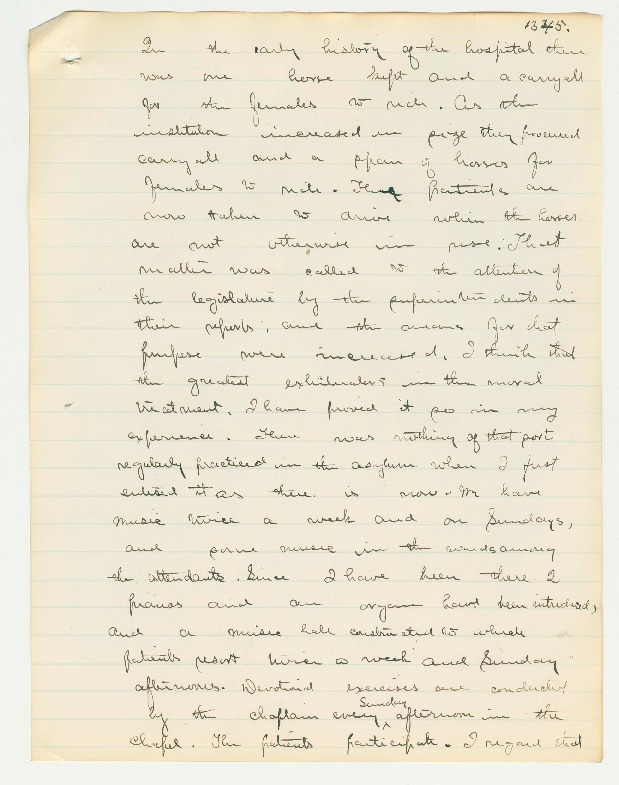 1345.
In the early history of the hospital there
was one horse kept and a carryall
for the females to ride. As the
institution increased in size they procured
carryall and a span of horses for
females to ride. The patients are
now taken to drive when the horses
are not otherwise in use. That
matter was called to the attention of
the legislature by the superintendents in
their reports, and the means for that
purpose were increased. I think that
the greatest exhilarator in the moral
treatment. I have proved it so in my
experience. There was nothing of that sort
regularly practiced in the asylum when I first
entered it as there is now. We have
music twice a week and on Sundays,
and some music in the wards among
the attendants. Since I have been there 2
pianos and an organ have been introduced,
and a music hall constructed to which
patients resort twice a week and Sunday
afternoons. Devotional exercises are conducted
by the chaplain every Sunday afternoon in the
chapel. The patients participate. I regard that